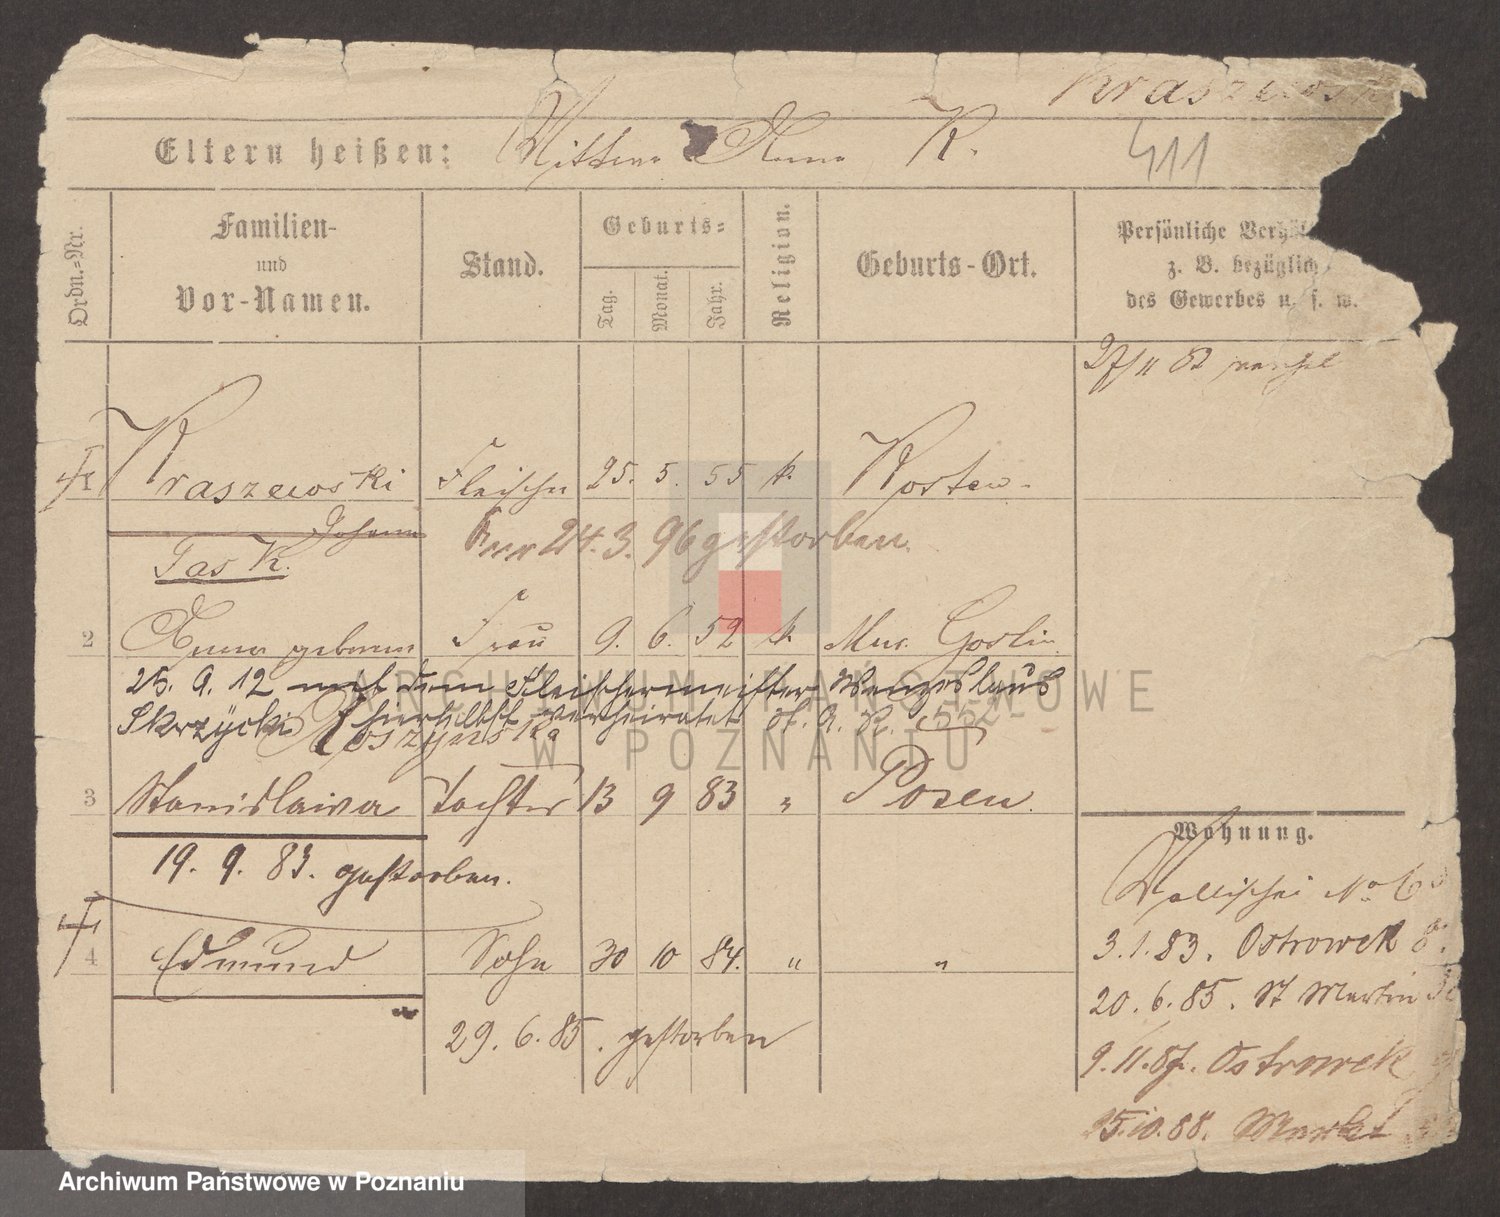 Kraszewsk
Eltern heißen: Mutter Anna K.
411
Ordn.=Nr.
Familien-
und
Vor-Namen.
Stand.
Geburts=
Tag.
Monat.
Jahr.
Religion.
Geburts-Ort.
Persönliche Verhäl
z. B. bezüglich
des Gewerbes u. s. w.
27/11 82
1 Kraszewski Fleischer 25. 5. 55 k. Kosten.
Johann
24. 3. 96 gestorben.
2 Anna geborene Frau 9. 6. 52 k. Mur. Goslin
25. 9. 12 mit dem Fleischermeister Wenzeslaus
Skrzycki hierselbst verheiratet
Roszynska
3 Stanislawa Tochter 13 9 83 " Posen.
19. 9. 83. gestorben.
4 Edmund Sohn 30 10 84. " "
29. 6. 85. gestorben
Wohnung.
Wallischei No 6
3.1.83. Ostrowek 8.
20. 6. 85. St Martin
9. 11. 87. Ostrowek
25.10.88. Markt
ARCHIWUM PAŃSTWOWE
W POZNANIU
Archiwum Państwowe w Poznaniu